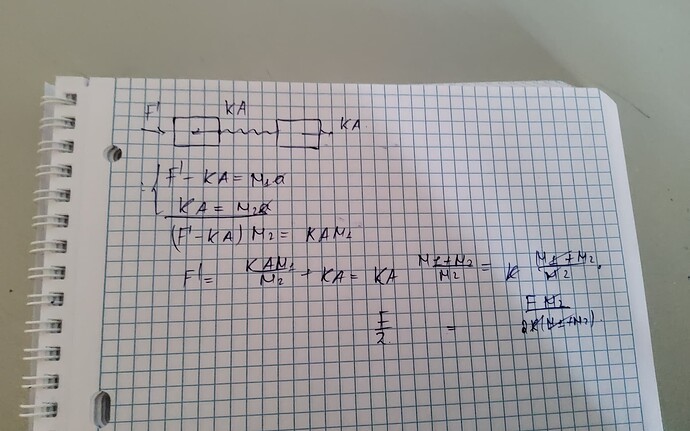 F' KA KA
F' - KA = M₁a
KA = M₂a
(F' - KA) M₂ = KAM₁
F' = KAM₁/M₂ + KA = KA (M₁+M₂)/M₂ = K (M₁+M₂)/M₂ ·
F/2 = F M₂/2K(M₁+M₂) .